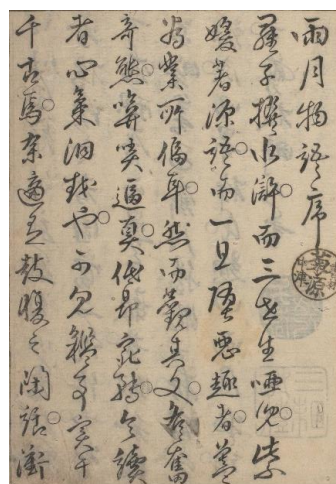 雨月物語序
羅子撰水滸。而三世生啞兒。紫
媛著源語。而一旦墮惡趣者。蓋
爲業所偪耳。然而觀其文。各奮
奇態。哢逼眞。低昂宛轉。令讀
者心氣洞越也。可見鑑事實于
千古焉。余適有鼓腹之閑話。衝